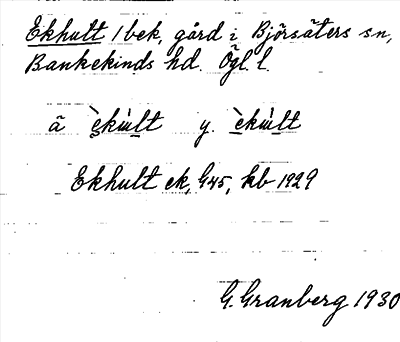 Ekhult 1 bek, gård i Björsäters sn,
Bankekinds hd. Ögl. l.
ä èkult y. èkult
Ekhult ek, G45, kb 1929
G. Granberg 1930